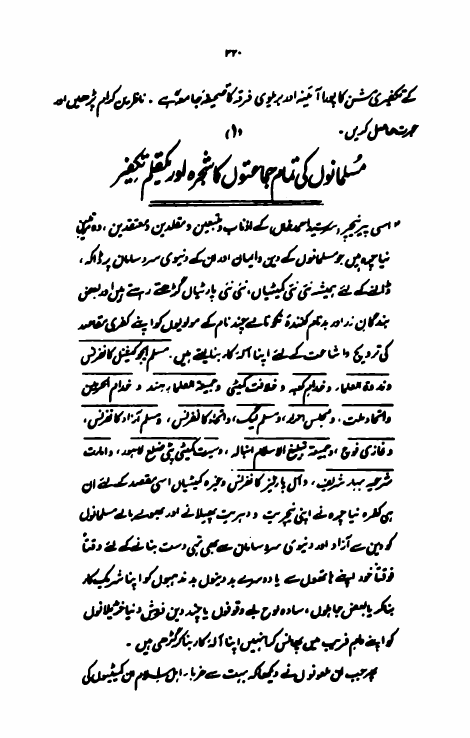 ۳۲۰
کے تکفیری مشن کا پورا آئینہ اور بریلوی فرقہ کا صحیفۂ جامعہ ہے ۔ ناظرین کرام پڑھیں اور
عبرت حاصل کریں ۔
(۱)
مسلمانوں کی تمام جماعتوں کا شجرہ اور یکقلم تکفیر
" اسی پیر نیچر سرسید احمد خاں کے اذناب و متبعین و مقلدین و معتقدین ، وہ
نیاچرہ ہیں جو مسلمانوں کے دین و ایمان اور ان کے دنیوی سروسامان پر ڈاکہ
ڈالنے کے لئے ہمیشہ نئی نئی کمیٹیاں ، نئی نئی پارٹیاں گڑھتے رہے ہیں اور بعض
بندگان زر اور بدنام کنندۂ نکونامے چند نام کے مولویوں کو اپنے کفری مقاصد
کی ترویج و اشاعت کے لئے اپنا آلہ کار بنا لیتے ہیں ۔ مسلم ایجوکیشنل کانفرنس
و ندوۃ العلماء و خدام کعبہ و خلافت کمیٹی و جمعیۃ العلماء ہند و خدام الحرمین
و اتحاد ملت ، و مجلس احرار ، و مسلم لیگ ، و اتحاد کانفرنس ، و مسلم آزاد کانفرنس ،
و غازی فوج ، و جمعیۃ تبلیغ الاسلام انبالہ ، و سیرت کمیٹی پٹی ضلع لاہور ، و امارت
شرعیہ بہار شریف ، و آل پارٹیز کانفرنس وغیرہ کمیٹیاں اسی مقصد کے لئے ان
ہی کفرہ نیاچرہ نے اپنی نیچریت و دہریت پھیلانے اور بھولے بھالے مسلمانوں
کو دین سے آزاد اور دنیوی سروسامان سے بھی تہی دست بنانے کے لئے وقتاً
فوقتاً خود اپنے ہاتھوں سے یا دوسرے بد دینوں بد مذہبوں کو اپنا شریک کار
بنا کر یا بعض جاہلوں ، سادہ لوح بے وقوفوں یا چند دین فروش دنیا خر ملانوں
کو اپنے دام فریب میں پھانس کر انہیں اپنا آلہ کار بنا کر گڑھی ہیں ۔
پھر جب ان ملعونوں نے دیکھا کہ بہت سے غرباء اہل اسلام ان کمیٹیوں کی